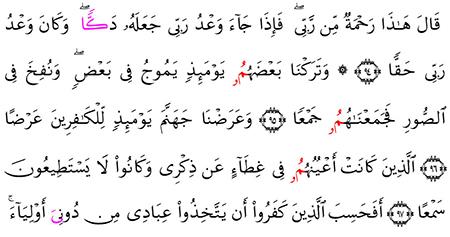 قَالَ هَـٰذَا رَحْمَةٌ مِّن رَّبِّىۖ فَإِذَا جَآءَ وَعْدُ رَبِّى جَعَلَهُۥ دَكًّاۖ وَكَانَ وَعْدُ
رَبِّى حَقًّا ﴿٩٤﴾ ۞ وَتَرَكْنَا بَعْضَهُمُۥ يَوْمَئِذٍ يَمُوجُ فِى بَعْضٍۖ وَنُفِخَ فِى
ٱلصُّورِ فَجَمَعْنَـٰهُمُۥ جَمْعًا ﴿٩٥﴾ وَعَرَضْنَا جَهَنَّمَ يَوْمَئِذٍ لِّلْكَـٰفِرِينَ عَرْضًا
﴿٩٦﴾ ٱلَّذِينَ كَانَتْ أَعْيُنُهُمُۥ فِى غِطَآءٍ عَن ذِكْرِى وَكَانُوا۟ لَا يَسْتَطِيعُونَ
سَمْعًا ﴿٩٧﴾ أَفَحَسِبَ ٱلَّذِينَ كَفَرُوٓا۟ أَن يَتَّخِذُوا۟ عِبَادِى مِن دُونِىَ أَوْلِيَآءَۚ